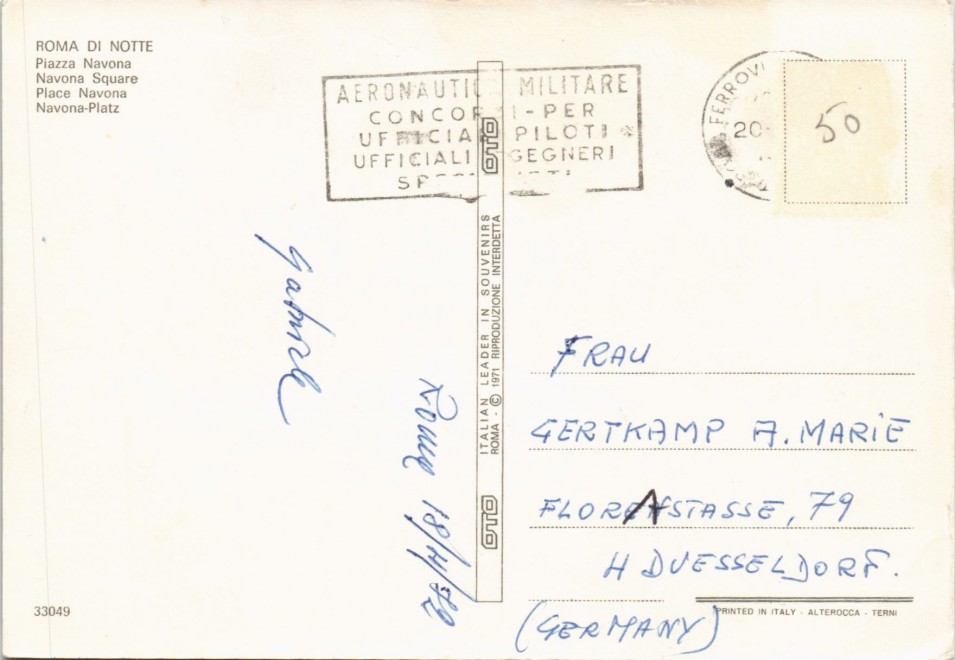 ROMA DI NOTTE
Piazza Navona
Navona Square
Place Navona
Navona-Platz
AERONAUTIC MILITARE
CONCOR I-PER
UFFICIA PILOTI *
UFFICIALI GEGNERI
FERROVI
20
50
OTO
ITALIAN LEADER IN SOUVENIRS
ROMA - © 1971 RIPRODUZIONE INTERDETTA
OTO
Roma 18/4/72
FRAU
GERTKAMP A. MARIE
STASSE, 79
4 DUESSELDORF.
(GERMANY)
33049
PRINTED IN ITALY - ALTEROCCA - TERNI